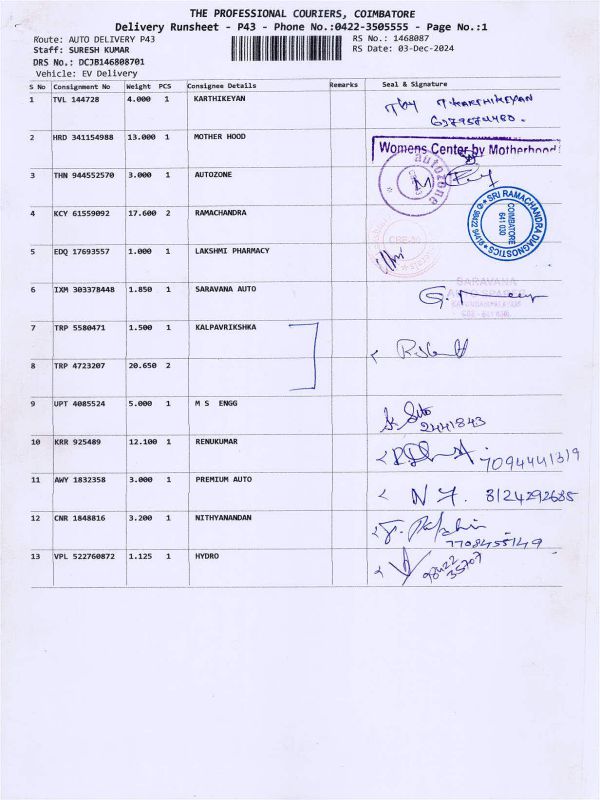 THE PROFESSIONAL COURIERS, COIMBATORE
Delivery Runsheet - P43 - Phone No.:0422-3505555 - Page No.:1
Route: AUTO DELIVERY P43 RS No.: 1468087
Staff: SURESH KUMAR RS Date: 03-Dec-2024
DRS No.: DCJB146808701
Vehicle: EV Delivery
S No Consignment No Weight PCS Consignee Details Remarks Seal & Signature
1 TVL 144728 4.000 1 KARTHIKEYAN T. KARTHIKEYAN
2 HRD 341154988 13.000 1 MOTHER HOOD Womens Center by Motherhood
3 THN 944552570 3.000 1 AUTOZONE autozone
4 KCY 61559092 17.600 2 RAMACHANDRA SRI RAMACHANDRA DIAGNOSTICS
COIMBATORE
641 030
5 EDQ 17693557 1.000 1 LAKSHMI PHARMACY
6 IXM 303378448 1.850 1 SARAVANA AUTO SARAVANA
7 TRP 5580471 1.500 1 KALPAVRIKSHKA
8 TRP 4723207 20.650 2
9 UPT 4085524 5.000 1 M S ENGG 2441843
10 KRR 925489 12.100 1 RENUKUMAR 7094441319
11 AWY 1832358 3.000 1 PREMIUM AUTO 8124292685
12 CNR 1848816 3.200 1 NITHYANANDAN 7708455149
13 VPL 522760872 1.125 1 HYDRO 98422
35707